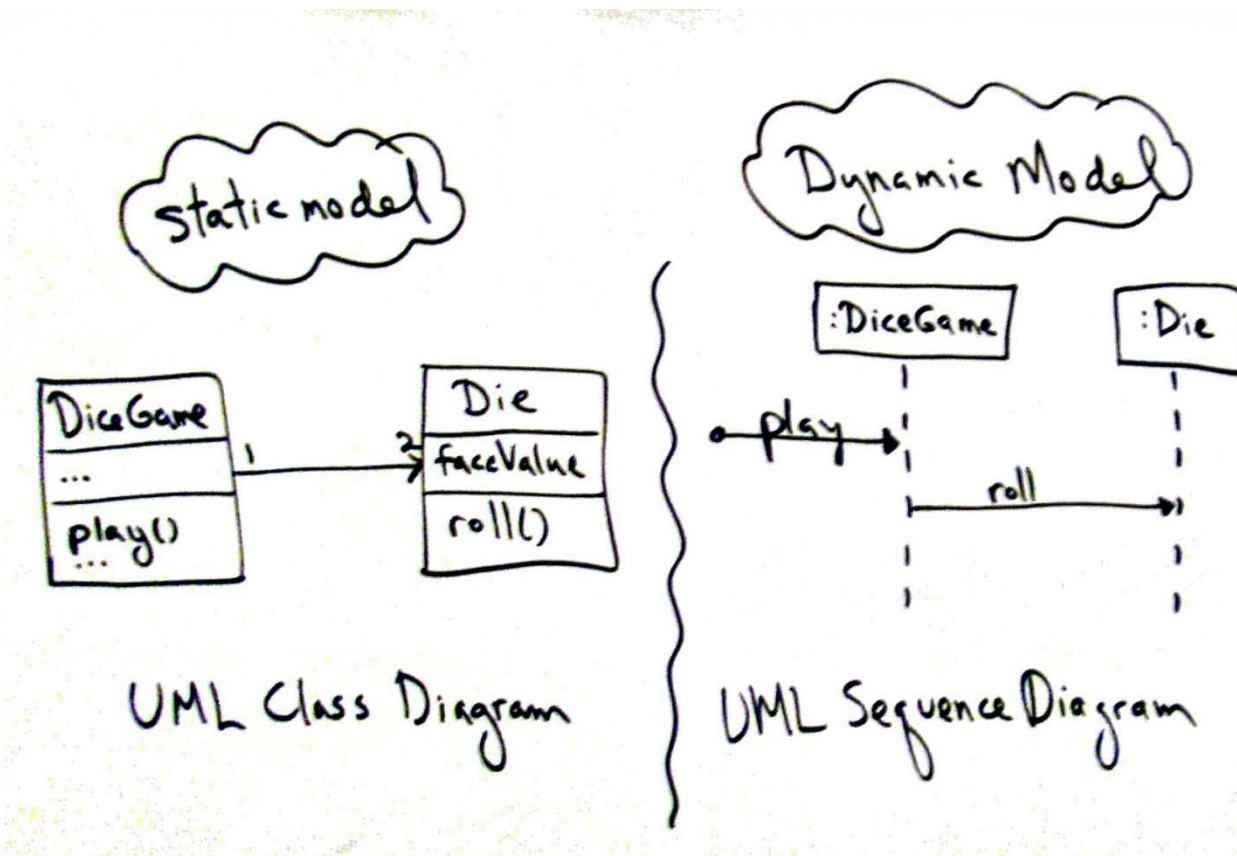 static model
DiceGame
...
play()
...
1
2
Die
faceValue
roll()
UML Class Diagram
Dynamic Model
:DiceGame
:Die
play
roll
UML Sequence Diagram